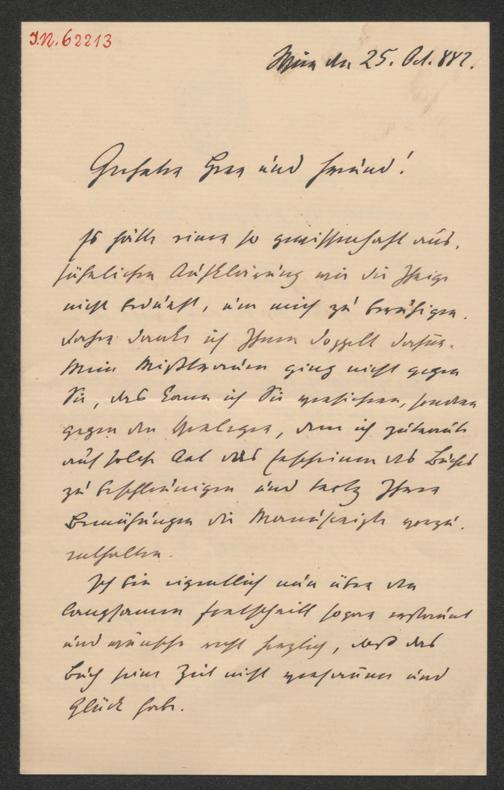 J.N. 62213
Wien den 25. Oct. 882.
Geehrter Herr und Freund!
Es hätte einer so gewissenhaft aus-
führlichen Aufklärung wie die Ihrige
nicht bedurft, um mich zu beruhigen.
daher danke ich Ihnen doppelt dafür.
Mein Mißtrauen ging nicht gegen
Sie, das kann ich Sie versichern, sondern
gegen den Verleger, dem ich zutraute
auf solche Art das Erscheinen des Buchs
zu beschleunigen und trotz Ihrer
Bemühungen die Manuscripte vorzu-
enthalten.
Ich bin eigentlich nun über den
langsamen Fortschritt sogar erfreut
und wünsche recht herzlich, daß das
Buch seine Zeit nicht versäume und
Glück habe.